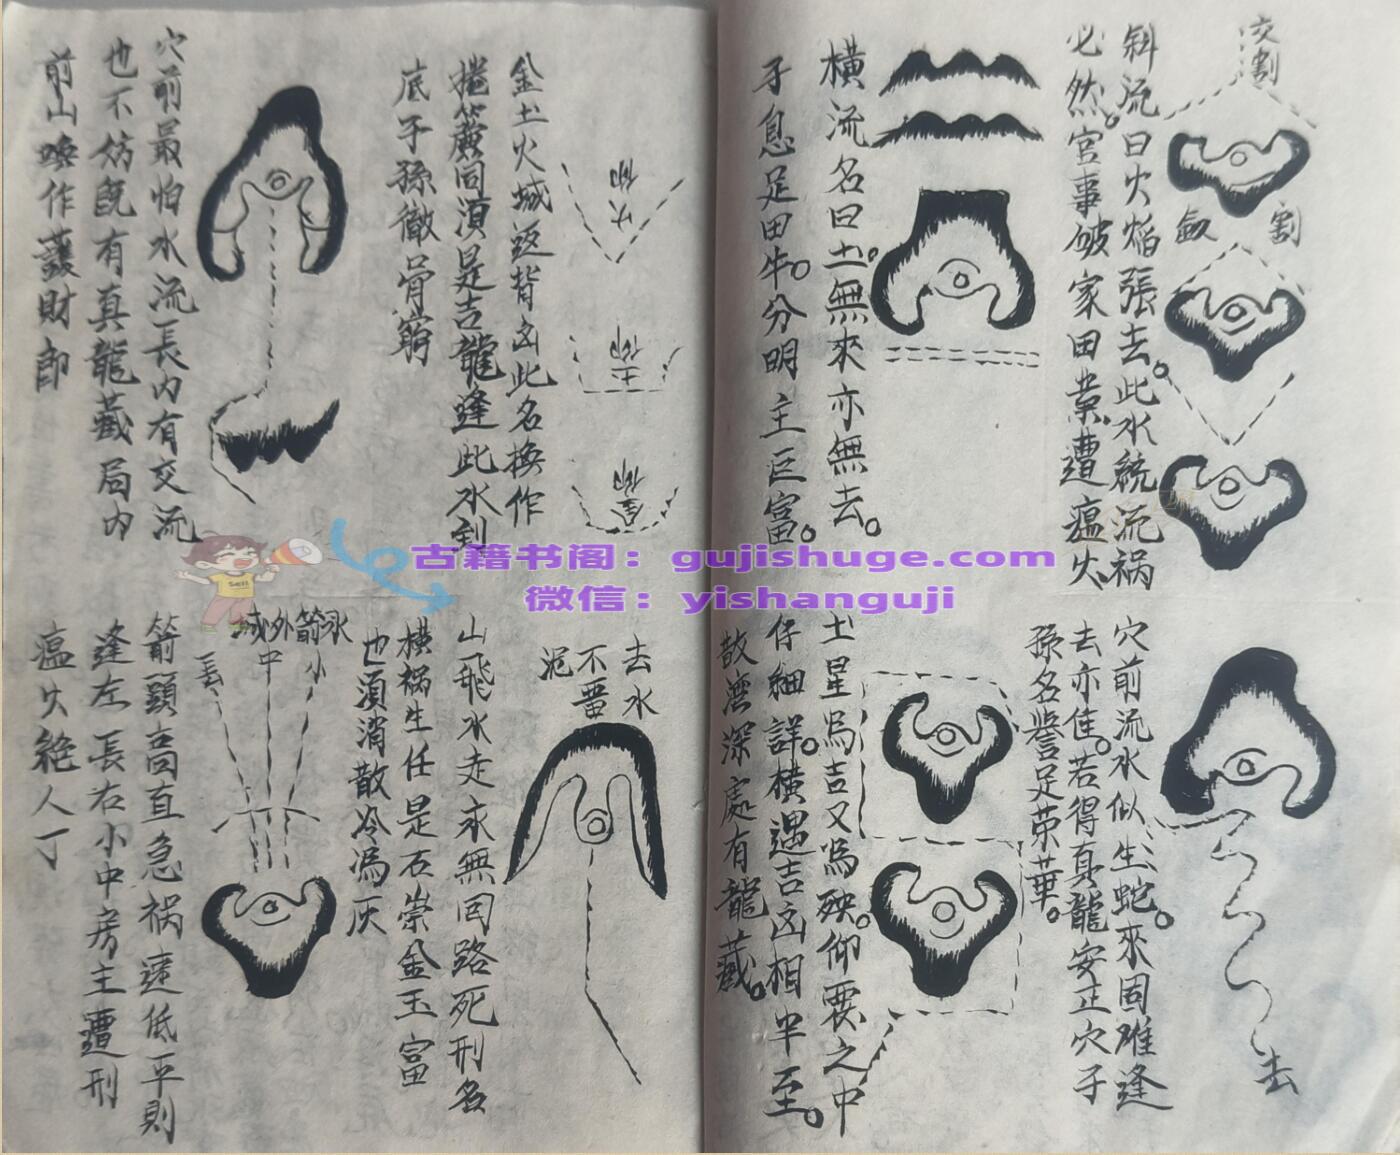 交割
斜流曰火焰張去此水統流祸
必然官事破家田業遭瘟火
劔
割
橫流名曰土無來亦無去
子息足田牛分明主巨富
穴前流水似生蛇來固难逢
去亦佳若得真龍安正穴子
孫名譽足荣華
去
土星為吉又為殃仰要之中
仔細詳橫遇吉凶相半至
散濟深處有龍藏
火仰
土仰
金仰
金土火城返背凶此名捲作
捲簾同須是吉龍逢此水到
底子孫徹骨窮
穴前最怕水流長内有交流
也不妨既有真龍藏局内
前山喚作護財郎
去水
不畱
泥
山飛水走永無囘路死刑名
橫祸生任是石崇金玉富
也須消散冷為灰
城外箭水
長
中
小
箭頭高直急祸速低平則
逢左長右小中房主遭刑
瘟火絶人丁
古籍书阁：gujishuge.com
微信：yishanguji